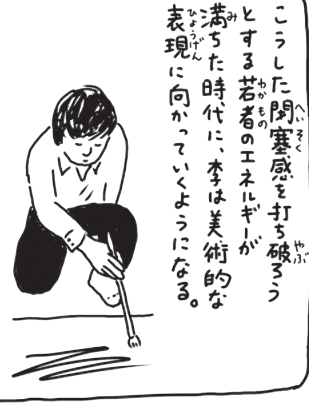 こうした閉塞感を打ち破ろう
とする若者のエネルギーが
満ちた時代に、李は美術的な
表現に向かっていくようになる。